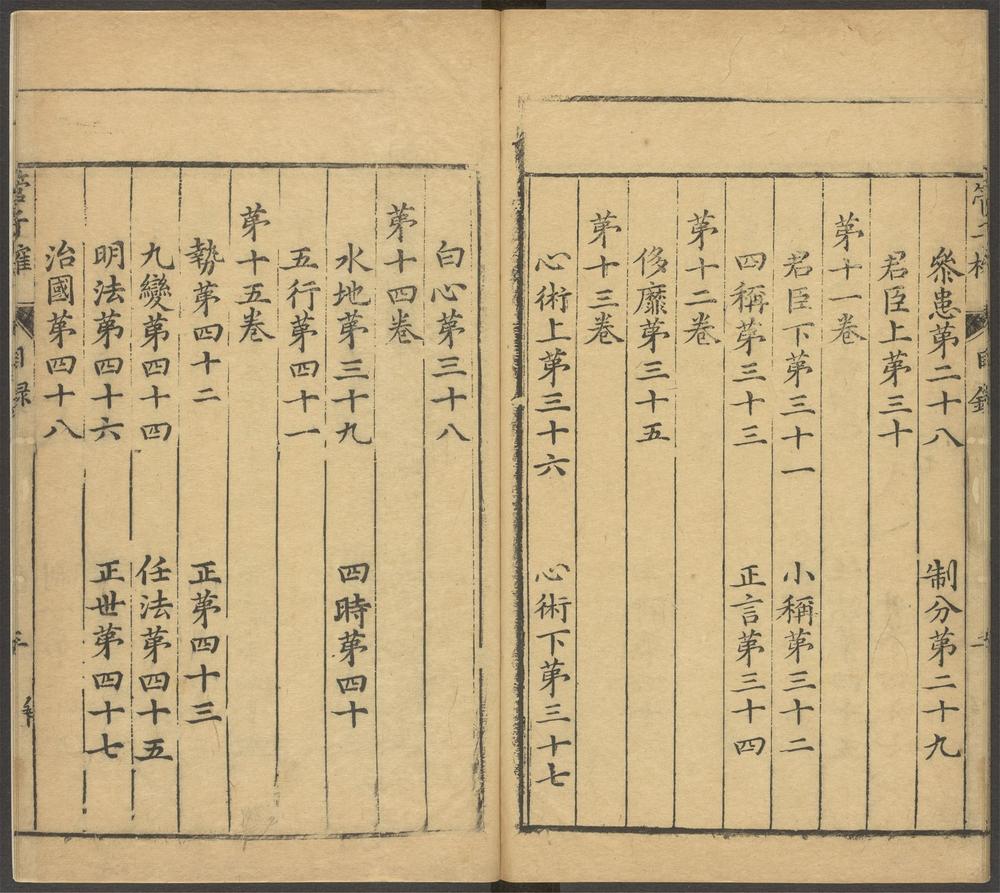 參患第二十八　制分第二十九
君臣上第三十
第十一卷
君臣下第三十一　小稱第三十二
四稱第三十三　正言第三十四
第十二卷
侈靡第三十五
第十三卷
心術上第三十六　心術下第三十七
白心第三十八
第十四卷
水地第三十九　四時第四十
五行第四十一
第十五卷
勢第四十二　正第四十三
九變第四十四　任法第四十五
明法第四十六　正世第四十七
治國第四十八
管子榷　目錄